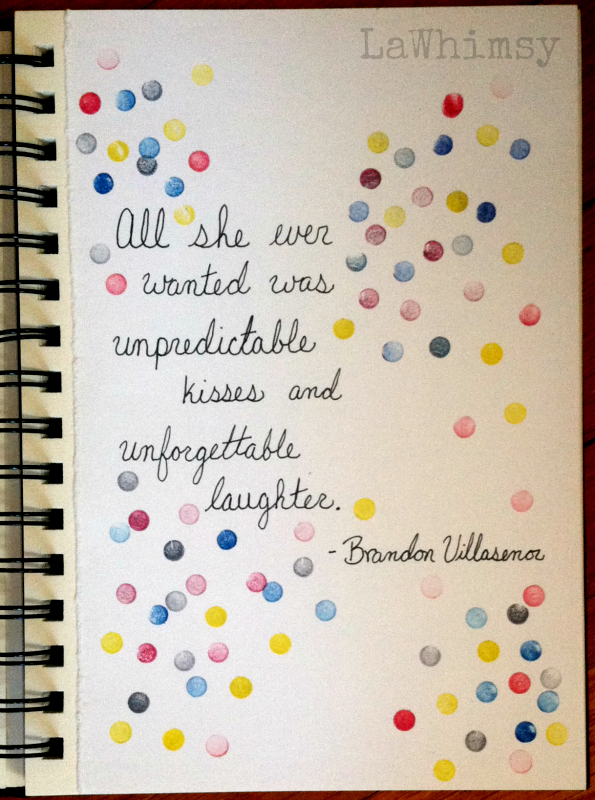 LaWhimsy
All she ever
wanted was
unpredictable
kisses and
unforgettable
laughter.
- Brandon Villasenor